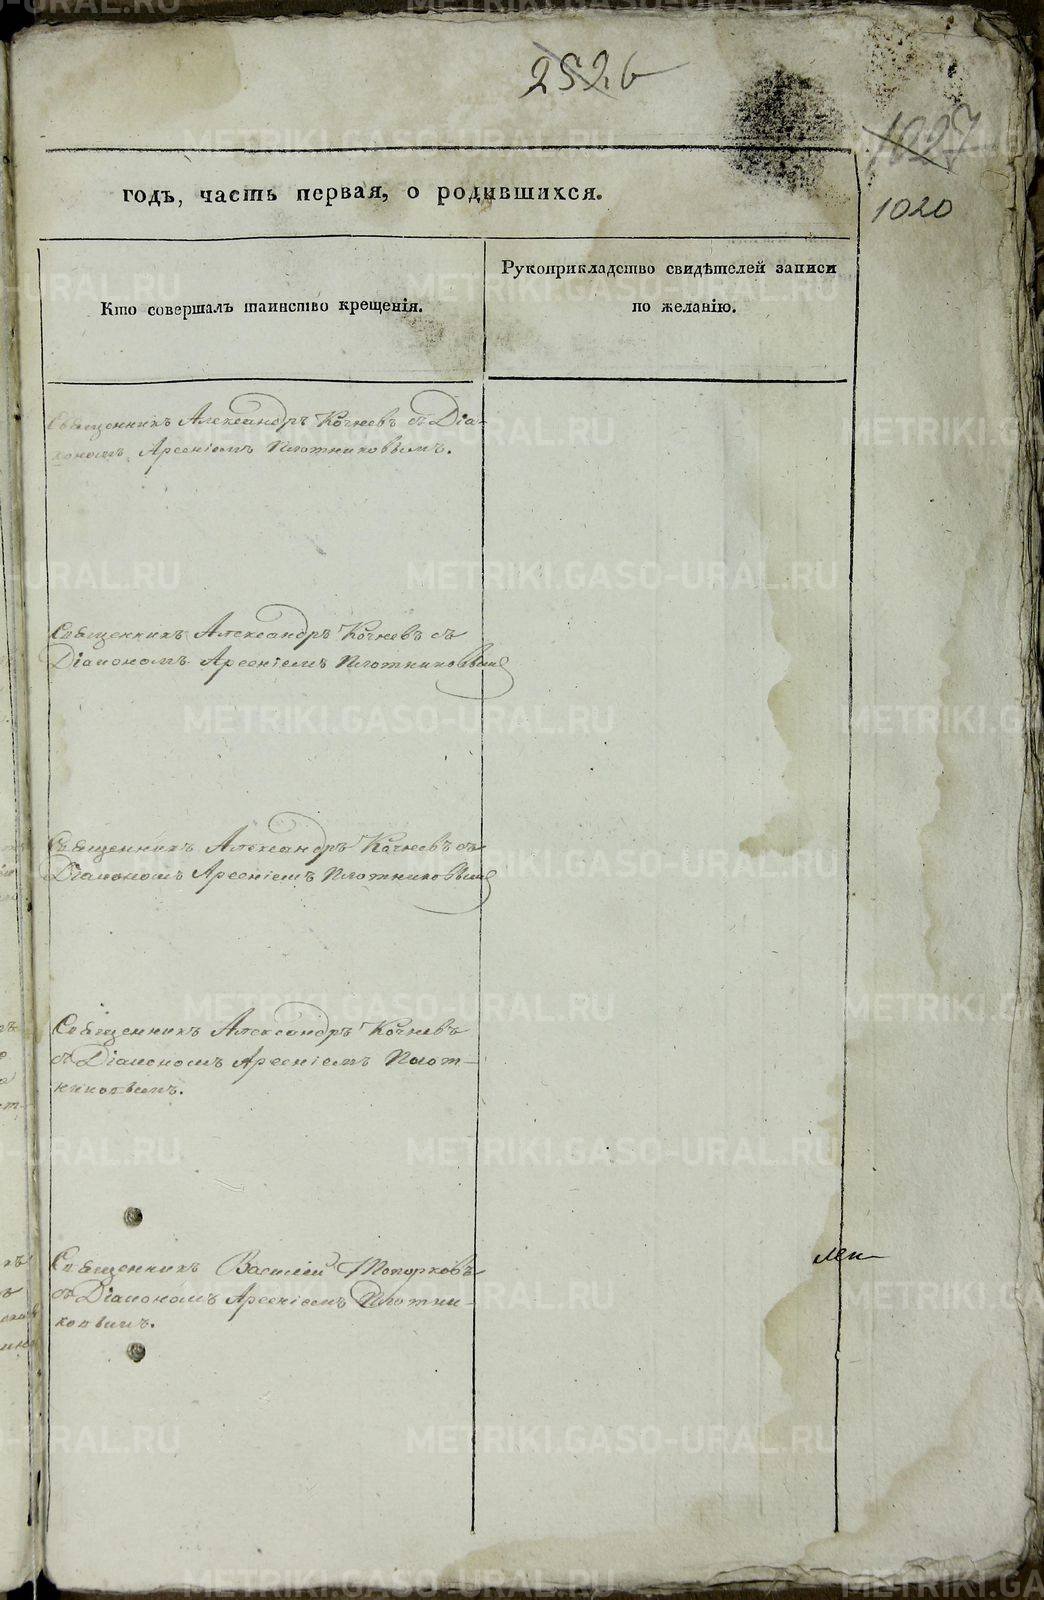 2526
1027
1020
годъ, часть первая, о родившихся.
Кто совершалъ таинство крещенія.
Рукоприкладство свидѣтелей записи
по желанію.
Священникъ Александръ Кочневъ съ Діа-
кономъ Арсеніемъ Плотниковымъ.
Священникъ Александръ Кочневъ съ
Діакономъ Арсеніемъ Плотниковым
Священникъ Александръ Кочневъ съ
Діакономъ Арсеніемъ Плотниковым
Священникъ Александръ Кочневъ
съ Діакономъ Арсеніемъ Плот-
никовымъ.
Священникъ Василій Топорковъ
съ Діакономъ Арсеніемъ Плотни-
ковымъ.
METRIKI.GASO-URAL.RU